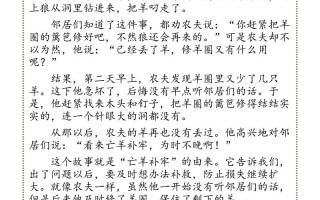 上狼从洞里钻进来，把羊叼走了。
邻居们知道了这件事，都劝农夫说：“你赶紧把羊
圈的篱笆修好吧，不然狼还会再来的。”可是农夫却不
以为然，他说：“已经丢了羊，修羊圈又有什么用
呢？”
结果，第二天早上，农夫发现羊圈里又少了几只
羊。这下他急坏了，后悔没有早点听邻居们的话。于
是，他赶紧找来木头和钉子，把羊圈的篱笆修得结结实
实的，连一个针眼大的洞都没有。
从那以后，农夫的羊再也没有丢过。他高兴地对邻
居们说：“看来亡羊补牢，为时不晚啊！”
这个故事就是“亡羊补牢”的由来。它告诉我们，
出了问题以后，要及时想办法补救，防止损失继续扩
大。就像农夫一样，虽然他一开始没有听邻居们的话，
但是后来他及时修了羊圈，保住了剩下的羊。